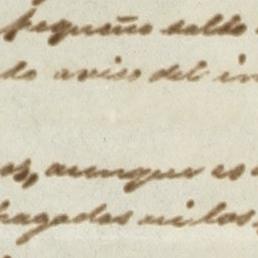 pequeño saldo
do aviso del in
os, aunque es
pagados ni los